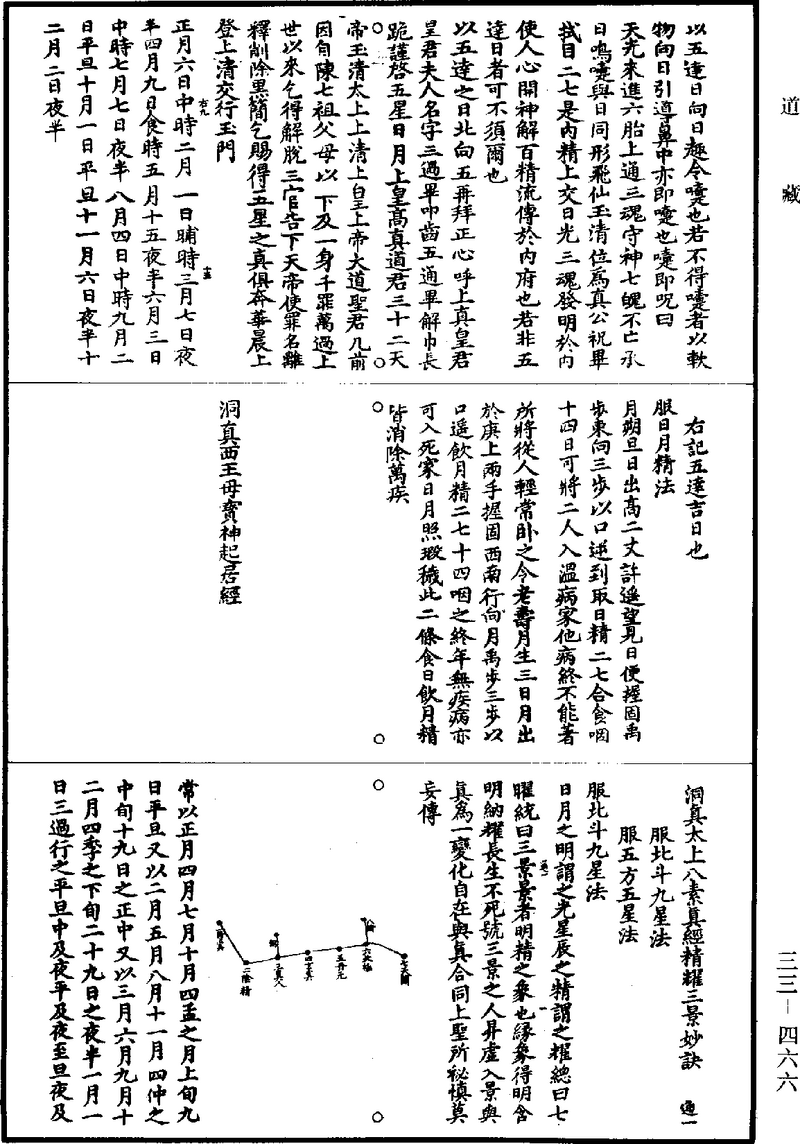 道藏
以五達日向日趣令嚏也若不得嚏者以軟
物向日引導鼻中亦即嚏也嚏即呪曰
天光來進六胎上通三魂守神七魄不亡承
日鳴嚏與日同形飛仙玉清位爲真公祝畢
拭目二七是內精上交日光三魂發明於內
使人心開神解百精流傳於內府也若非五
達日者可不須爾也
以五達之日北向五再拜正心呼上真皇君
皇君夫人名字三過畢叩齒五通畢解巾長
跪謹啓五星日月上皇高真道君三十二天
帝玉清太上上清上皇上帝大道聖君几前
因自陳七祖父母以下及一身千罪萬過上
世以來乞得解脫三官告下天帝使罪名離
釋削除黑簡乞賜得五星之真俱奔華晨上
登上清交行玉門
正月六日中時二月一日晡時三月七日夜
半四月九日食時五月十五夜半六月三日
中時七月七日夜半八月四日中時九月二
日平旦十月一日平旦十一月六日夜半十
二月二日夜半
右記五達吉日也
服日月精法
月朔旦日出高二丈許遥望見日便握固禹
步東向三步以口逆到取日精二七合食咽
十四日可將二人入溫病家他病終不能著
所將從人輕常卧之令老壽月生三日月出
於庚上兩手握固西南行向月禹步三步以
口遥飲月精二七十四咽之終年無疾病亦
可入死家日月照瑕穢此二條食日飲月精
皆消除萬疾
洞真西王母寳神起居經
洞真太上八素真經精耀三景妙訣 通一
服北斗九星法
服五方五星法
服北斗九星法
日月之明謂之光星辰之精謂之耀總曰七
曜統曰三景景者明精之象也緣象得明含
明納耀長生不死號三景之人昇虛入景與
真爲一變化自在與真合同上聖所祕慎莫
妄傳
二陰精
三真人
五丹元
六北極
七天關
常以正月四月七月十月四孟之月上旬九
日平旦又以二月五月八月十一月四仲之
中旬十九日之正中又以三月六月九月十
二月四季之下旬二十九日之夜半一月一
日三過行之平旦中及夜半及夜至旦夜及
三三－四六六